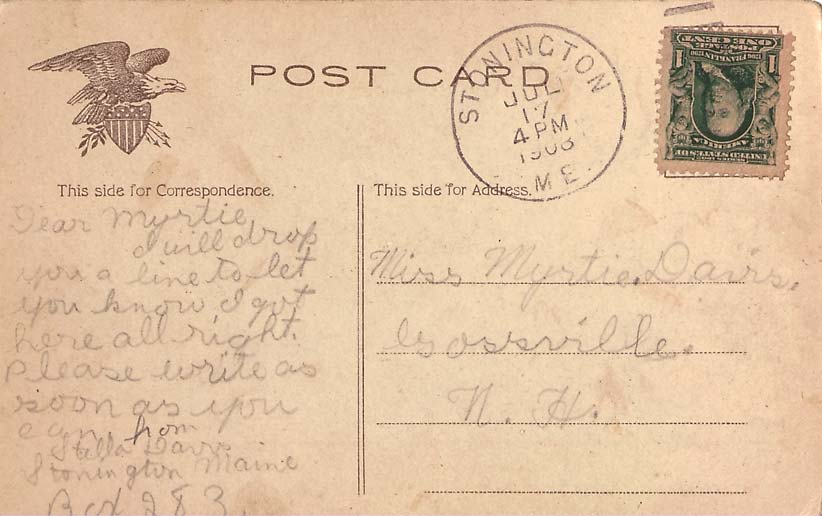 POST CARD
STONINGTON
JUL
17
4 PM
1908
ME.
1706 FRANKLIN 1790
POSTAGE
ONE CENT
1 1
SERIES 1902
UNITED STATES OF
AMERICA
This side for Correspondence.
Dear Myrtie,
I will drop
you a line to let
you know I got
here all right.
Please write as
soon as you
can, from
Stella Davis
Stonington Maine
Box 283.
This side for Address.
Miss Myrtie Davis.
Gossville.
N. H.